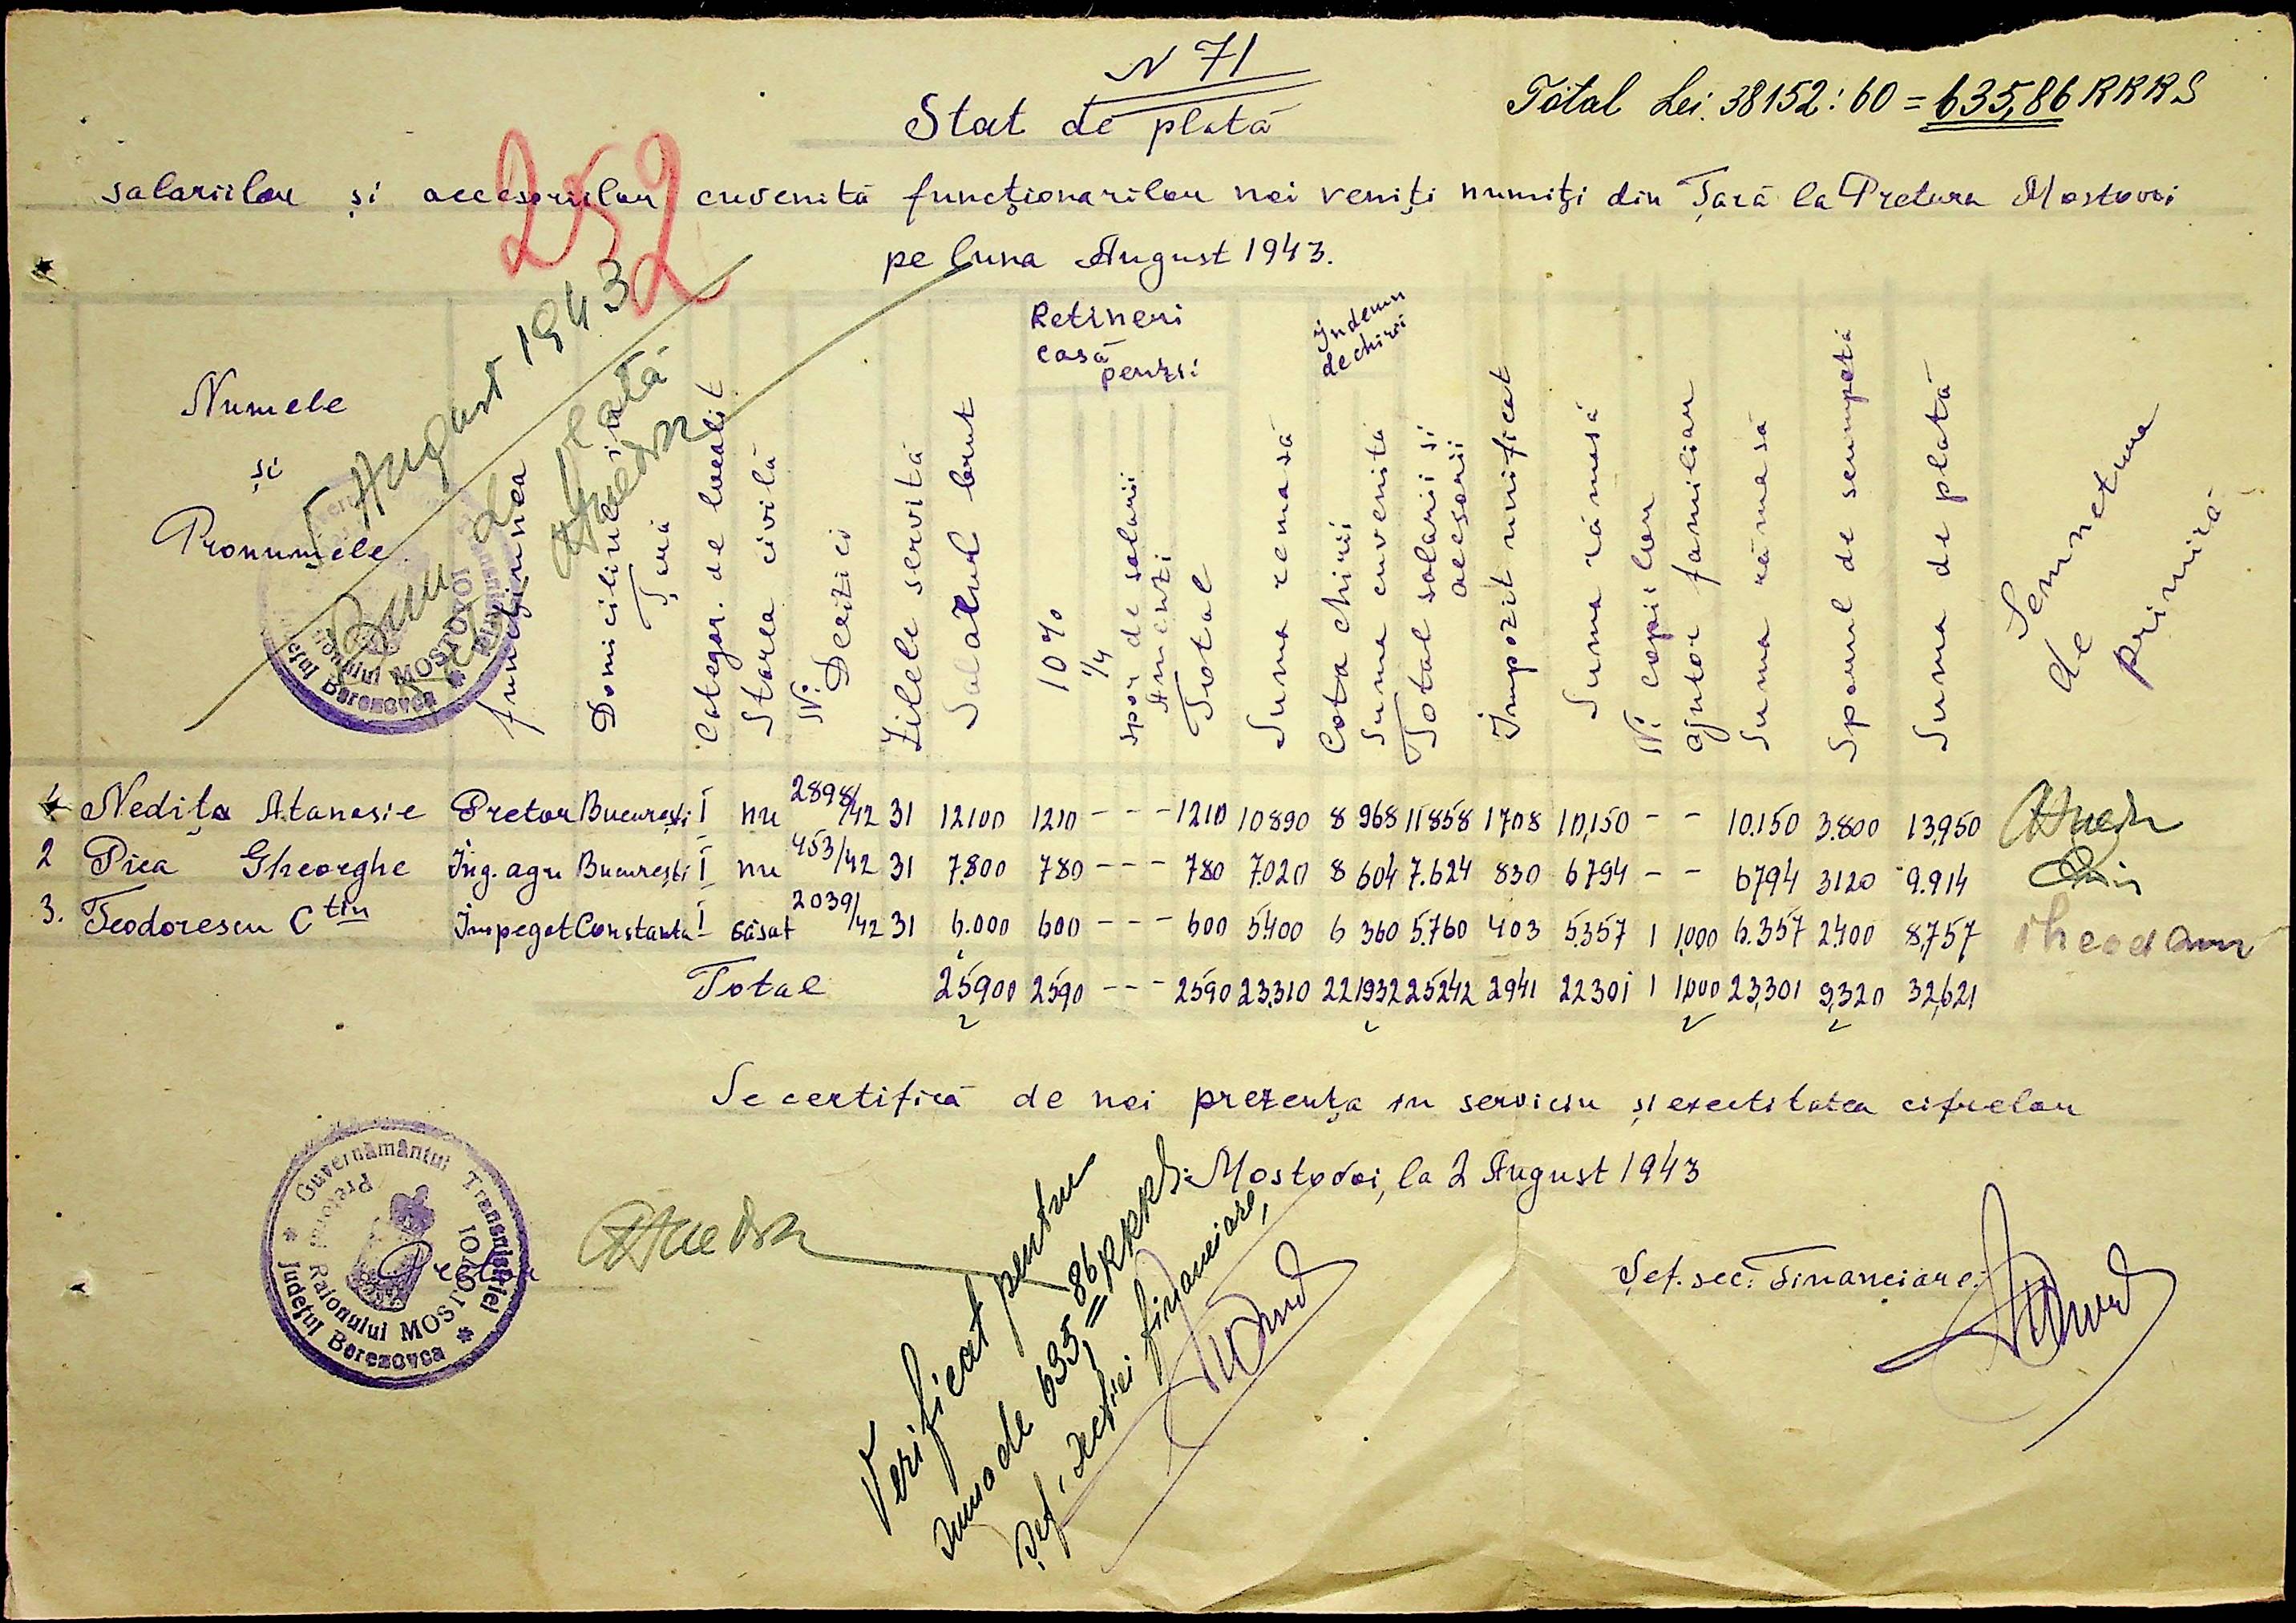 N 71
Stat de plată
Total Lei. 38152:60 = 635,86 RKKS
252
salariilor și accesoriilor cuvenită funcționarilor noi veniți numiți din Țară la Pretura Mostovoi
pe luna August 1943.
5 August 1943
Bun de plată
Numele și Pronumele
Funcțiunea
Domiciliul in Țară
Categor. de localit
Starea civilă
Nr. Deciziei
Zilele servită
Salarul brut
Retineri casă pensii
10%
1/4 spor de salarii
Amenzi
Total
Suma remasă
Indemn de chirii
Cota chirii
Suma cuvenita
Total salarii si accesorii
Impozit unificat
Suma rămasă
Nr. copiilor
ajutor familiar
Suma rămasă
Sporul de scumpete
Suma de plată
Semnetura de primire
1 Nedița Atanasie Pretor București I nu 2898/42 31 12100 1210 - - - 1210 10890 8 968 11858 1708 10,150 - - 10.150 3.800 13,950
2 Pica Gheorghe Ing. agr București I nu 453/42 31 7.800 780 - - - 780 7.020 8 604 7.624 830 6794 - - 6794 3120 9.914
3. Teodorescu Ctin Impegat Constanta I căsat 2039/42 31 6.000 600 - - - 600 5.400 6 360 5.760 403 5.357 1 1,000 6.357 2.400 8,757
Total 25,900 2590 - - - 2590 23,310 22 1932 25242 2941 22301 1 1,000 23,301 9,320 32,621
Se certifică de noi prezența in serviciu și exactitatea cifrelor
Mostovoi, la 2 August 1943
Guvernământul Transnistriei
Pretura Raionului MOSTOVOI
Județul Berezovca
Pretor
Verificat pentru
suma de 635,86 RKKS.
Șef. secției financiare,
Șef. sec. Financiare.